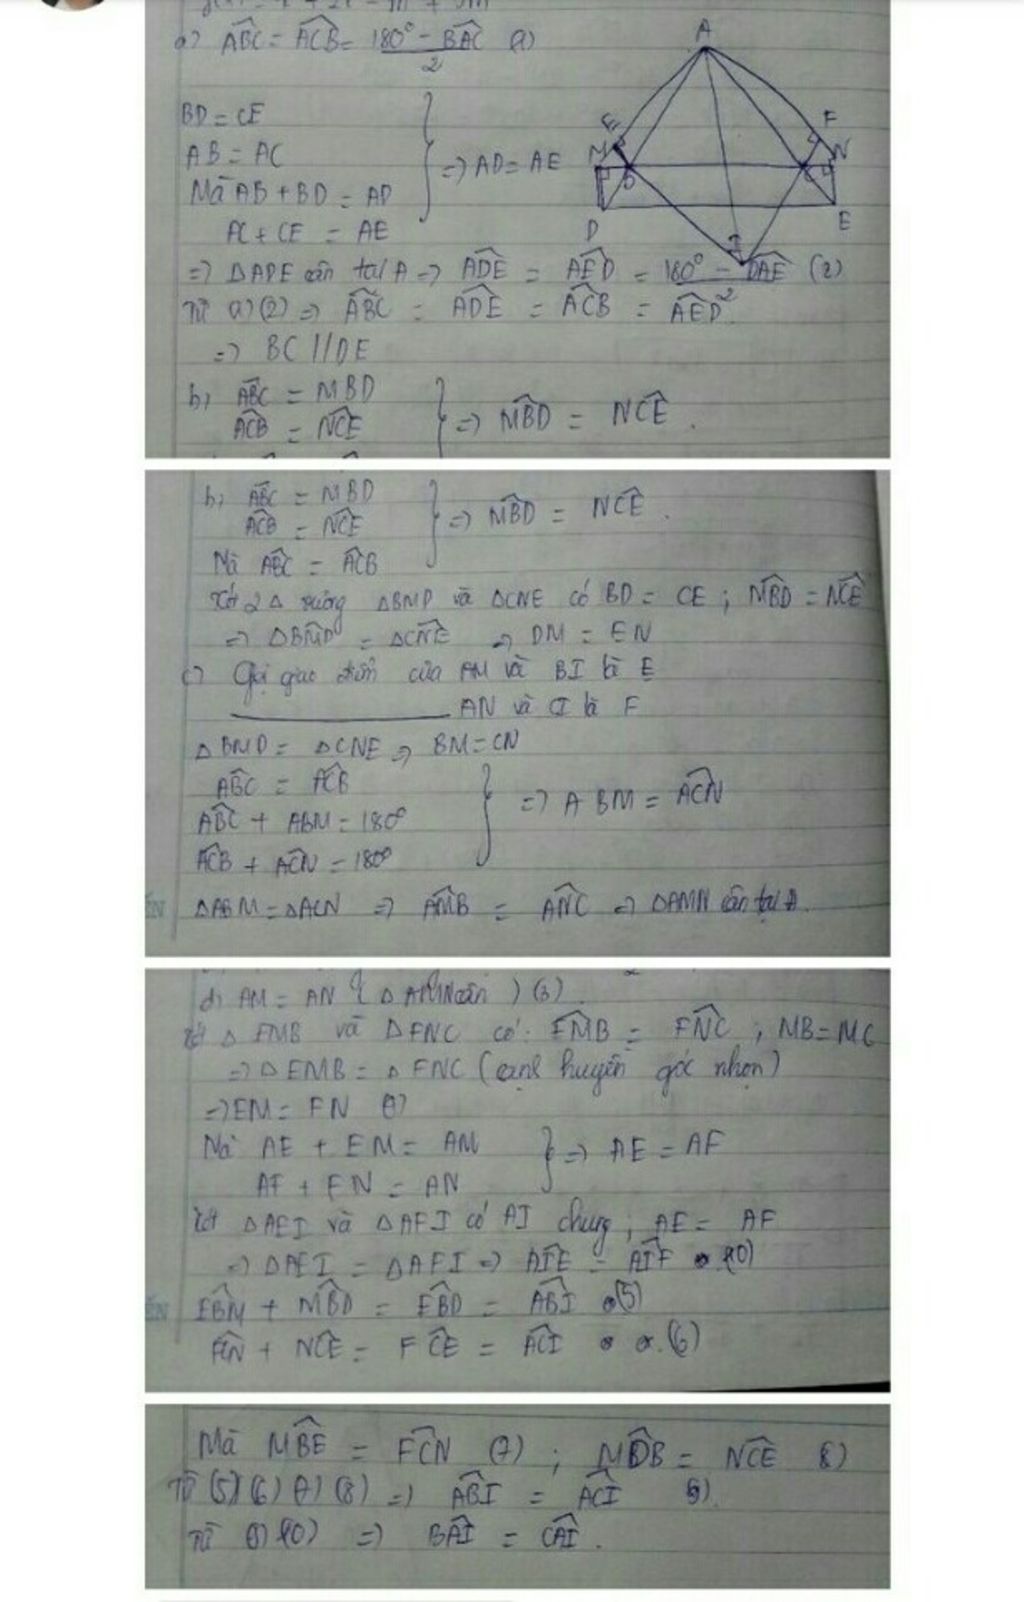 a) ABC = ACB = 180° - BAC (1)
2
BD = CE
AB = AC
Mà AB + BD = AD
AC + CE = AE
=> AD = AE
A
E
M
B
D
F
N
C
E
I
=> ΔADE cân tại A => ADE = AED = 180° - DAE (2)
2
Từ (1)(2) => ABC = ADE = ACB = AED
=> BC // DE
b, ABC = MBD
ACB = NCE
=> MBD = NCE.
b, ABC = MBD
ACB = NCE
Mà ABC = ACB
=> MBD = NCE.
Xét 2Δ vuông ΔBMD và ΔCNE có BD = CE ; MBD = NCE
=> ΔBMD = ΔCNE => DM = EN
c) Gọi giao điểm của AM và BI là E
AN và CI là F
ΔBMD = ΔCNE => BM = CN
ABC = ACB
ABC + ABM = 180°
ACB + ACN = 180°
=> ABM = ACN
ΔABM = ΔACN => AMB = ANC => ΔAMN cân tại A.
d) AM = AN (ΔAMN cân) (3)
Xét Δ EMB và ΔFNC có: EMB = FNC ; MB = MC
=> Δ EMB = Δ FNC (cạnh huyền góc nhọn)
=> EM = FN
Mà AE + EM = AM
AF + FN = AN
=> AE = AF
Xét ΔAEI và ΔAFI có AI chung ; AE = AF
=> ΔAEI = ΔAFI => AIE = AIF (10)
EBM + MBD = EBD = ABI (5)
FCN + NCE = FCE = ACI (6)
Mà MBE = FCN (7) ; MDB = NCE 8)
Từ (5)(6)(7)(8) => ABI = ACI 9)
Từ (9)(10) => BAI = CAI.